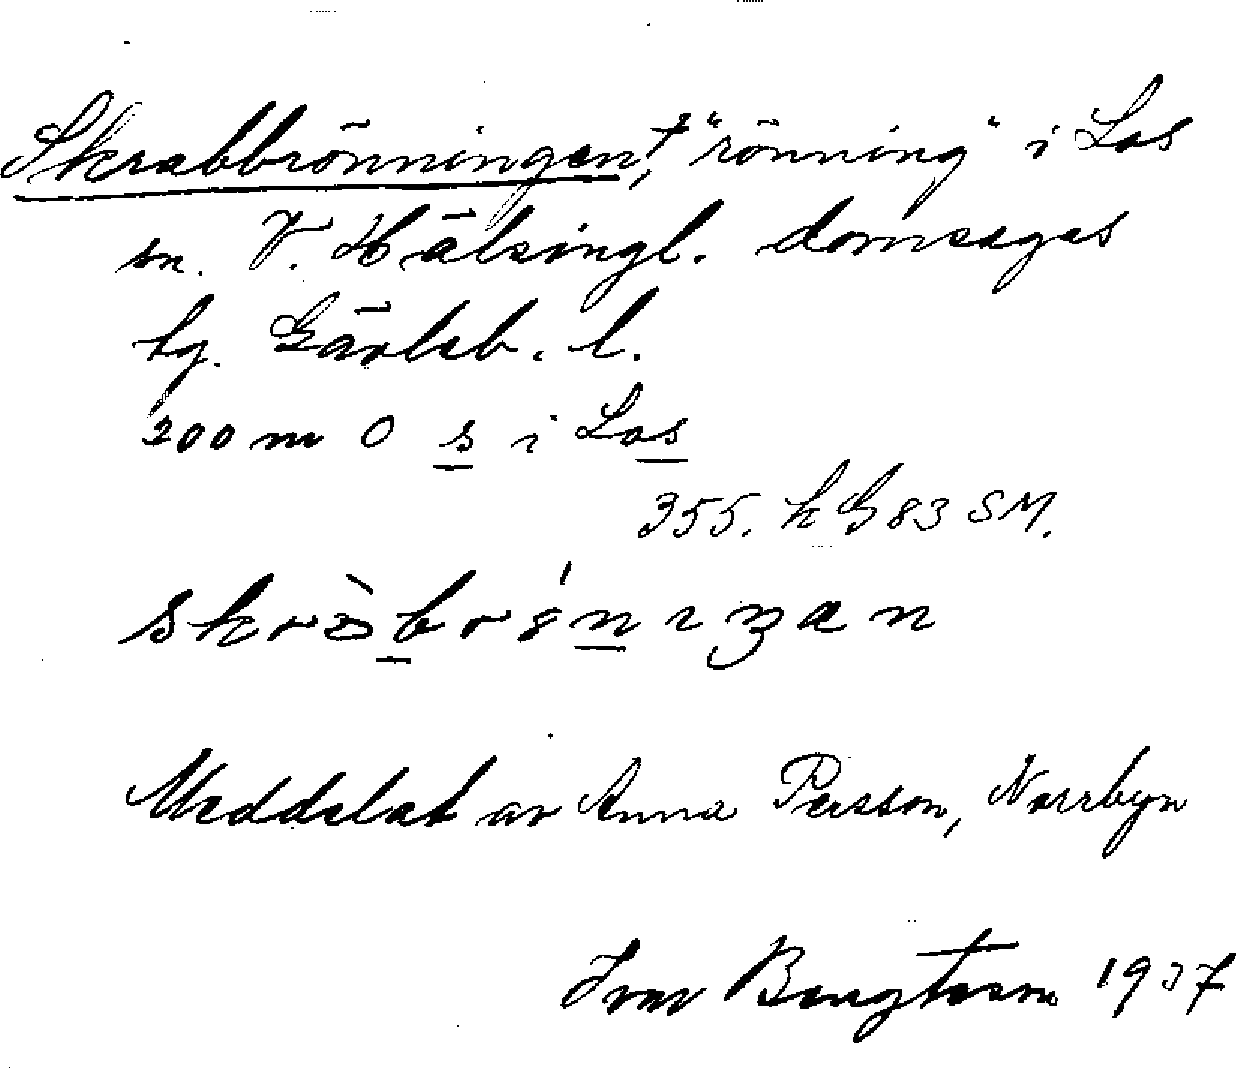 Skrabbrönningen,† "rönning" i Los
sn. V. Hälsingl. domsagas
tg. Gävleb. l.
200 m O s i Los
355. h G 83 SM.
Meddelat av Anna Persson, Norrbyn
Ivar Bengtsson 1937